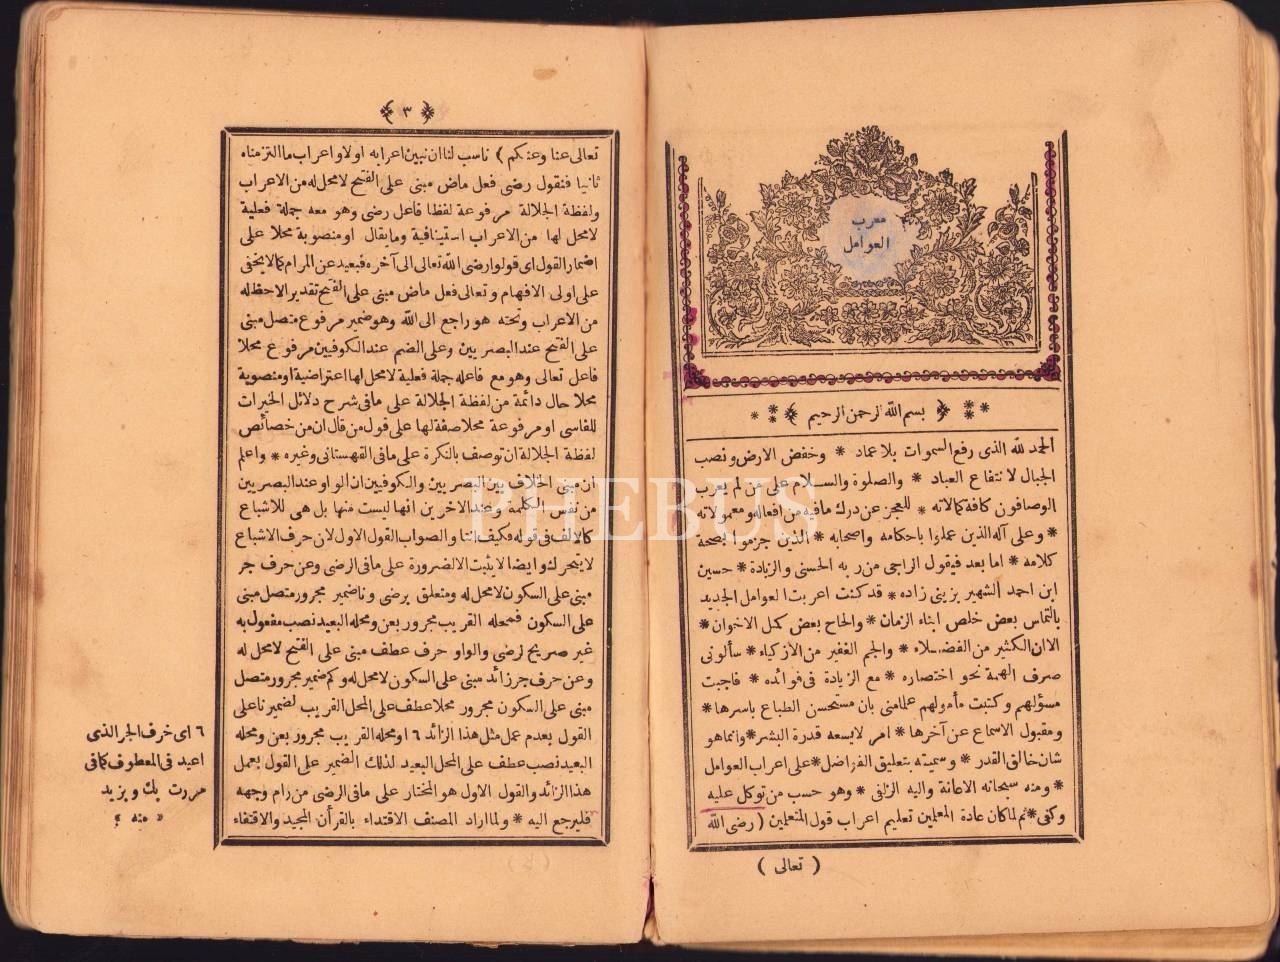 معرب
العوامل
بسم الله الرحمن الرحيم
الحمد لله الذى رفع السموات بلا عماد * وخفض الارض ونصب
الجبال لانتفاع العباد * والصلوة والسلام على من لم يعرب
الوصافون كافة كمالاته * للعجز عن درك مافيه من افعاله ومعمولاته
* وعلى آله الذين عملوا باحكامه واصحابه * الذين جزموا بصحة
كلامه * اما بعد فيقول الراجى من ربه الحسنى والزيادة * حسين
ابن احمد الشهير بزينى زاده * قد كنت اعربت العوامل الجديد
بالتماس بعض خلص ابناء الزمان * والحاح بعض كمل الاخوان *
الا ان الكثير من الفضلاء * والجم الغفير من الازكياء * سألونى
صرف الهمة نحو اختصاره * مع الزيادة فى فوائده * فاجبت
مسؤلهم وكتبت مأمولهم علما منى بان مستحسن الطباع باسرها *
ومقبول الاسماع عن آخرها * امر لايسعه قدرة البشر * وانما هو
شان خالق القدر * وسميته بتعليق الفواضل * على اعراب العوامل
* ومنه سبحانه الاعانة واليه الزلفى * وهو حسب من توكل عليه
وكفى * ثم لما كان عادة المعلمين تعليم اعراب قول المتعلمين ( رضى الله
( تعالى )
٣
تعالى عنا وعنكم ) ناسب لنا ان نبين اعرابه اولا واعراب ما التزمناه
ثانيا فنقول رضى فعل ماض مبنى على الفتح لامحل له من الاعراب
ولفظة الجلالة مرفوعة لفظا فاعل رضى وهو معه جملة فعلية
لامحل لها من الاعراب استينافية وما يقال او منصوبة محلا على
اضمار القول اى قولوا رضى الله تعالى الى آخره فبعيد عن المرام كما لا يخفى
على اولى الافهام وتعالى فعل ماض مبنى على الفتح تقديرا لاحظ له
من الاعراب وتحته هو راجع الى الله وهو ضمير مرفوع متصل مبنى
على الفتح عند البصريين وعلى الضم عند الكوفيين مرفوع محلا
فاعل تعالى وهو مع فاعله جملة فعلية لامحل لها اعتراضية او منصوبة
محلا حال دائمة من لفظة الجلالة على مافى شرح دلائل الخيرات
للفاسى او مرفوعة محلا صفة لها على قول من قال ان من خصائص
لفظة الجلالة ان توصف بالنكرة على مافى القهستانى وغيره * واعلم
ان مبنى الخلاف بين البصريين والكوفيين ان الواو عند البصريين
من نفس الكلمة وعند الآخرين انها ليست منها بل هى للاشباع
كالالف فى قوله فكيف انا والصواب القول الاول لان حرف الاشباع
لا يتحرك وايضا لا يثبت الا لضرورة على مافى الرضى وعن حرف جر
مبنى على السكون لامحل له ومتعلق برضى ونا ضمير مجرور متصل مبنى
على السكون فمحله القريب مجرور بعن ومحله البعيد نصب مفعول به
غير صريح لرضى والواو حرف عطف مبنى على الفتح لامحل له
وعن حرف جر زائد مبنى على السكون لامحل له وكم ضمير مجرور متصل
مبنى على السكون مجرور محلا عطف على المحل القريب لضمير نا على
القول بعدم عمل مثل هذا الزائد ٦ او محله القريب مجرور بعن ومحله
البعيد نصب عطف على المحل البعيد لذلك الضمير على القول بعمل
هذا الزائد والقول الاول هو المختار على مافى الرضى من رام وجهه
فليرجع اليه * ولما اراد المصنف الاقتداء بالقرأن المجيد والاقتفاء
٦ اى حرف الجر الذى
اعيد فى المعطوف كما فى
مررت بك وبزيد
« منه »
PHEBUS